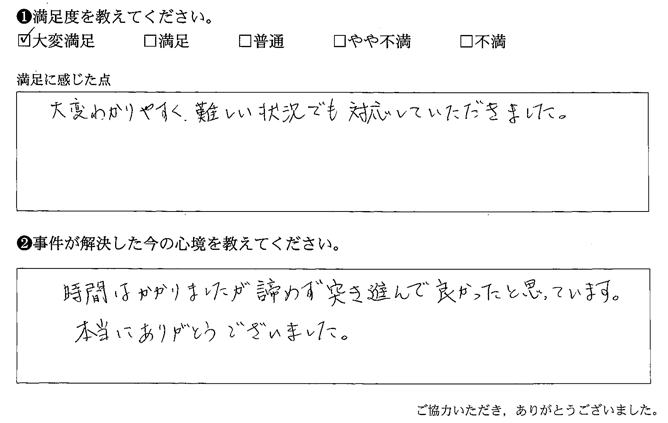 ❶満足度を教えてください。
☑大変満足 □満足 □普通 □やや不満 □不満
満足に感じた点
大変わかりやすく、難しい状況でも対応していただきました。
❷事件が解決した今の心境を教えてください。
時間はかかりましたが諦めず突き進んで良かったと思っています。
本当にありがとうございました。
ご協力いただき，ありがとうございました。